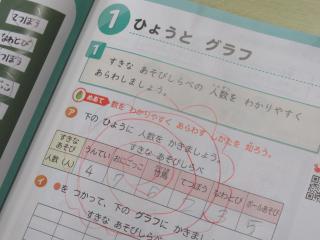 てつぼう
なわとび
1 ひょうと グラフ
1 すきな あそびしらべの 人数を わかりやすく
あらわしましょう。
めあて 数を わかりやすく あらわす しかたを 知ろう。
ア 下の ひょうに 人数を かきましょう。
すきな あそびしらべ
すきな あそび うんてい おにごっこ てつぼう なわとび ボールあそび
人数(人) 4 7 3 5
イ ●を つかって、下の グラフに かきましょ
すきな あそびしらべ